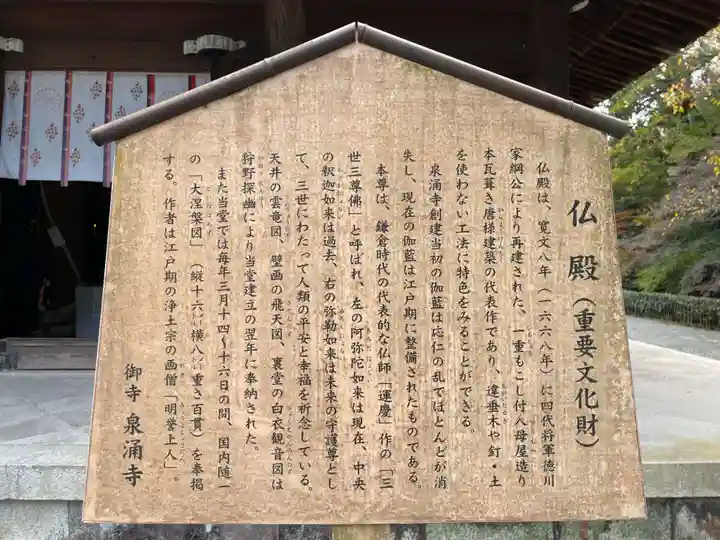 仏殿（重要文化財）
仏殿は、寛文八年（一六六八年）に四代将軍徳川
家綱公により再建された、一重もこし付入母屋造り
本瓦葺き唐様建築の代表作であり、違垂木や釘・土
を使わない工法に特色をみることができる。
泉涌寺創建当初の伽藍は応仁の乱でほとんどが消
失し、現在の伽藍は江戸期に整備されたものである。
本尊は、鎌倉時代の代表的な仏師「運慶」作の「三
世三尊佛」と呼ばれ、左の阿弥陀如来は現在、中央
の釈迦如来は過去、右の弥勒如来は未来の守護尊とし
て、三世にわたって人類の平安と幸福を祈念している。
天井の雲竜図、壁画の飛天図、裏堂の白衣観音図は
狩野探幽により当堂建立の翌年に奉納された。
また当堂では毎年三月十四～十六日の間、国内随一
の「大涅槃図」（縦十六㍍横八㍍重さ百貫）を奉掲
する。作者は江戸期の浄土宗の画僧「明誉上人」。
御寺 泉涌寺